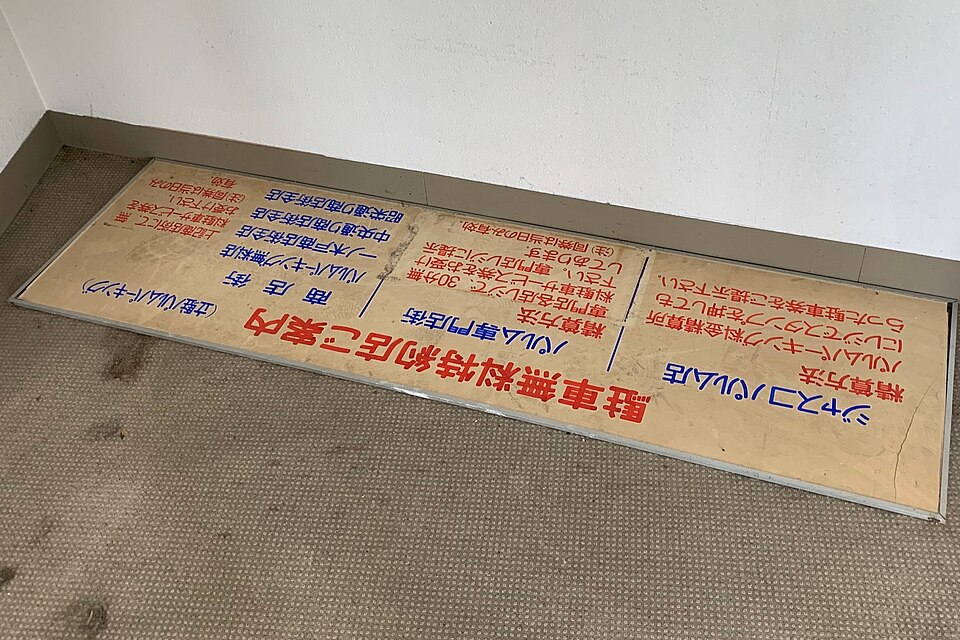 駐車無料特約店ご案内
パルムパーキング)
ジャスコパルム店
精算方法
パルムパーキング料金精算所
にレジでスタンプを押しても
らった駐車券をご提示下さい。
パルム専門店街
精算方法
専門店各店レジで、30分無
料駐車サービス券をお受け
下さい。専門店レジに提示
してあります
(注)同券は当日のみ有効
商店街
パルムパーキング無料店
一ノ木戸商店街全店
中央通り商店街全店
昭栄通り商店街全店
上記商店街にて 無
料駐車サービス券を
お受け下さい。
(注)同券は当日のみ
有効。